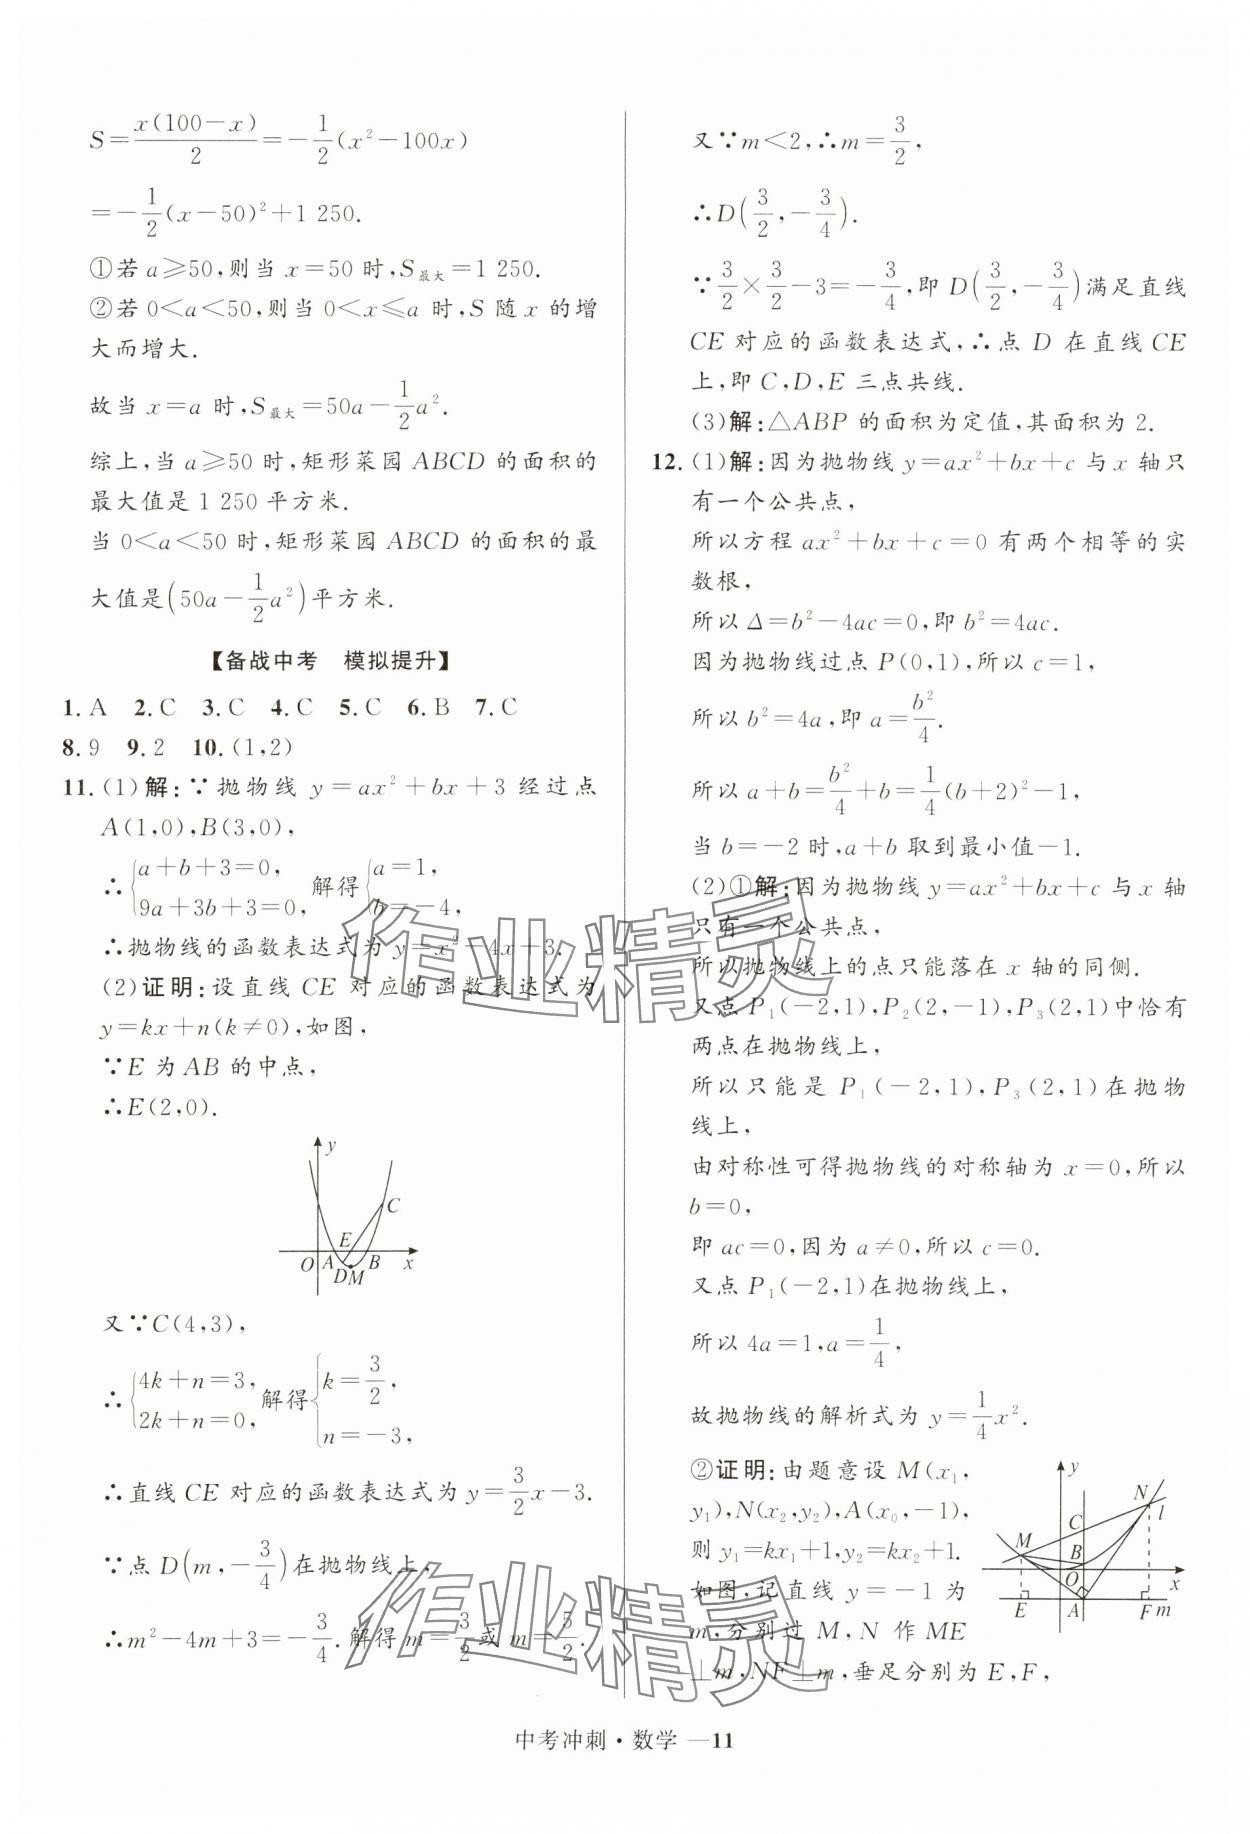 S=x(100-x)/2=-1/2(x²-100x)
=-1/2(x-50)²+1 250.
①若 a≥50,则当 x=50 时,S最大=1 250.
②若 0<a<50,则当 0<x≤a 时,S 随 x 的增
大而增大.
故当 x=a 时,S最大=50a-1/2a².
综上,当 a≥50 时,矩形菜园 ABCD 的面积的
最大值是 1 250 平方米.
当 0<a<50 时,矩形菜园 ABCD 的面积的最
大值是(50a-1/2a²)平方米.
【备战中考 模拟提升】
1.A 2.C 3.C 4.C 5.C 6.B 7.C
8.9 9.2 10.(1,2)
11.(1)解:∵抛物线 y=ax²+bx+3 经过点
A(1,0),B(3,0),
∴{a+b+3=0, 9a+3b+3=0, 解得{a=1, b=-4,
∴抛物线的函数表达式为 y=x²-4x+3.
(2)证明:设直线 CE 对应的函数表达式为
y=kx+n(k≠0),如图,
∵E 为 AB 的中点,
∴E(2,0).
y
C
E
O A B x
DM
又∵C(4,3),
∴{4k+n=3, 2k+n=0, 解得{k=3/2, n=-3,
∴直线 CE 对应的函数表达式为 y=3/2x-3.
∵点 D(m,-3/4)在抛物线上,
∴m²-4m+3=-3/4.解得 m=3/2或 m=5/2.
又∵m<2,∴m=3/2,
∴D(3/2,-3/4).
∵3/2×3/2-3=-3/4,即 D(3/2,-3/4)满足直线
CE 对应的函数表达式,∴点 D 在直线 CE
上,即 C,D,E 三点共线.
(3)解:△ABP 的面积为定值,其面积为 2.
12.(1)解:因为抛物线 y=ax²+bx+c 与 x 轴只
有一个公共点,
所以方程 ax²+bx+c=0 有两个相等的实
数根,
所以 Δ=b²-4ac=0,即 b²=4ac.
因为抛物线过点 P(0,1),所以 c=1,
所以 b²=4a,即 a=b²/4.
所以 a+b=b²/4+b=1/4(b+2)²-1,
当 b=-2 时,a+b 取到最小值-1.
(2)①解:因为抛物线 y=ax²+bx+c 与 x 轴
只有一个公共点,
所以抛物线上的点只能落在 x 轴的同侧.
又点 P₁(-2,1),P₂(2,-1),P₃(2,1)中恰有
两点在抛物线上,
所以只能是 P₁(-2,1),P₃(2,1)在抛物
线上,
由对称性可得抛物线的对称轴为 x=0,所以
b=0,
即 ac=0,因为 a≠0,所以 c=0.
又点 P₁(-2,1)在抛物线上,
所以 4a=1,a=1/4,
故抛物线的解析式为 y=1/4x².
②证明:由题意设 M(x₁,
y₁),N(x₂,y₂),A(x₀,-1),
则 y₁=kx₁+1,y₂=kx₂+1.
如图,记直线 y=-1 为
m,分别过 M,N 作 ME
⊥m,NF⊥m,垂足分别为 E,F,
y
N
C l
M B
O x
E A F m
作业精灵
作业精灵
中考冲刺·数学 —11